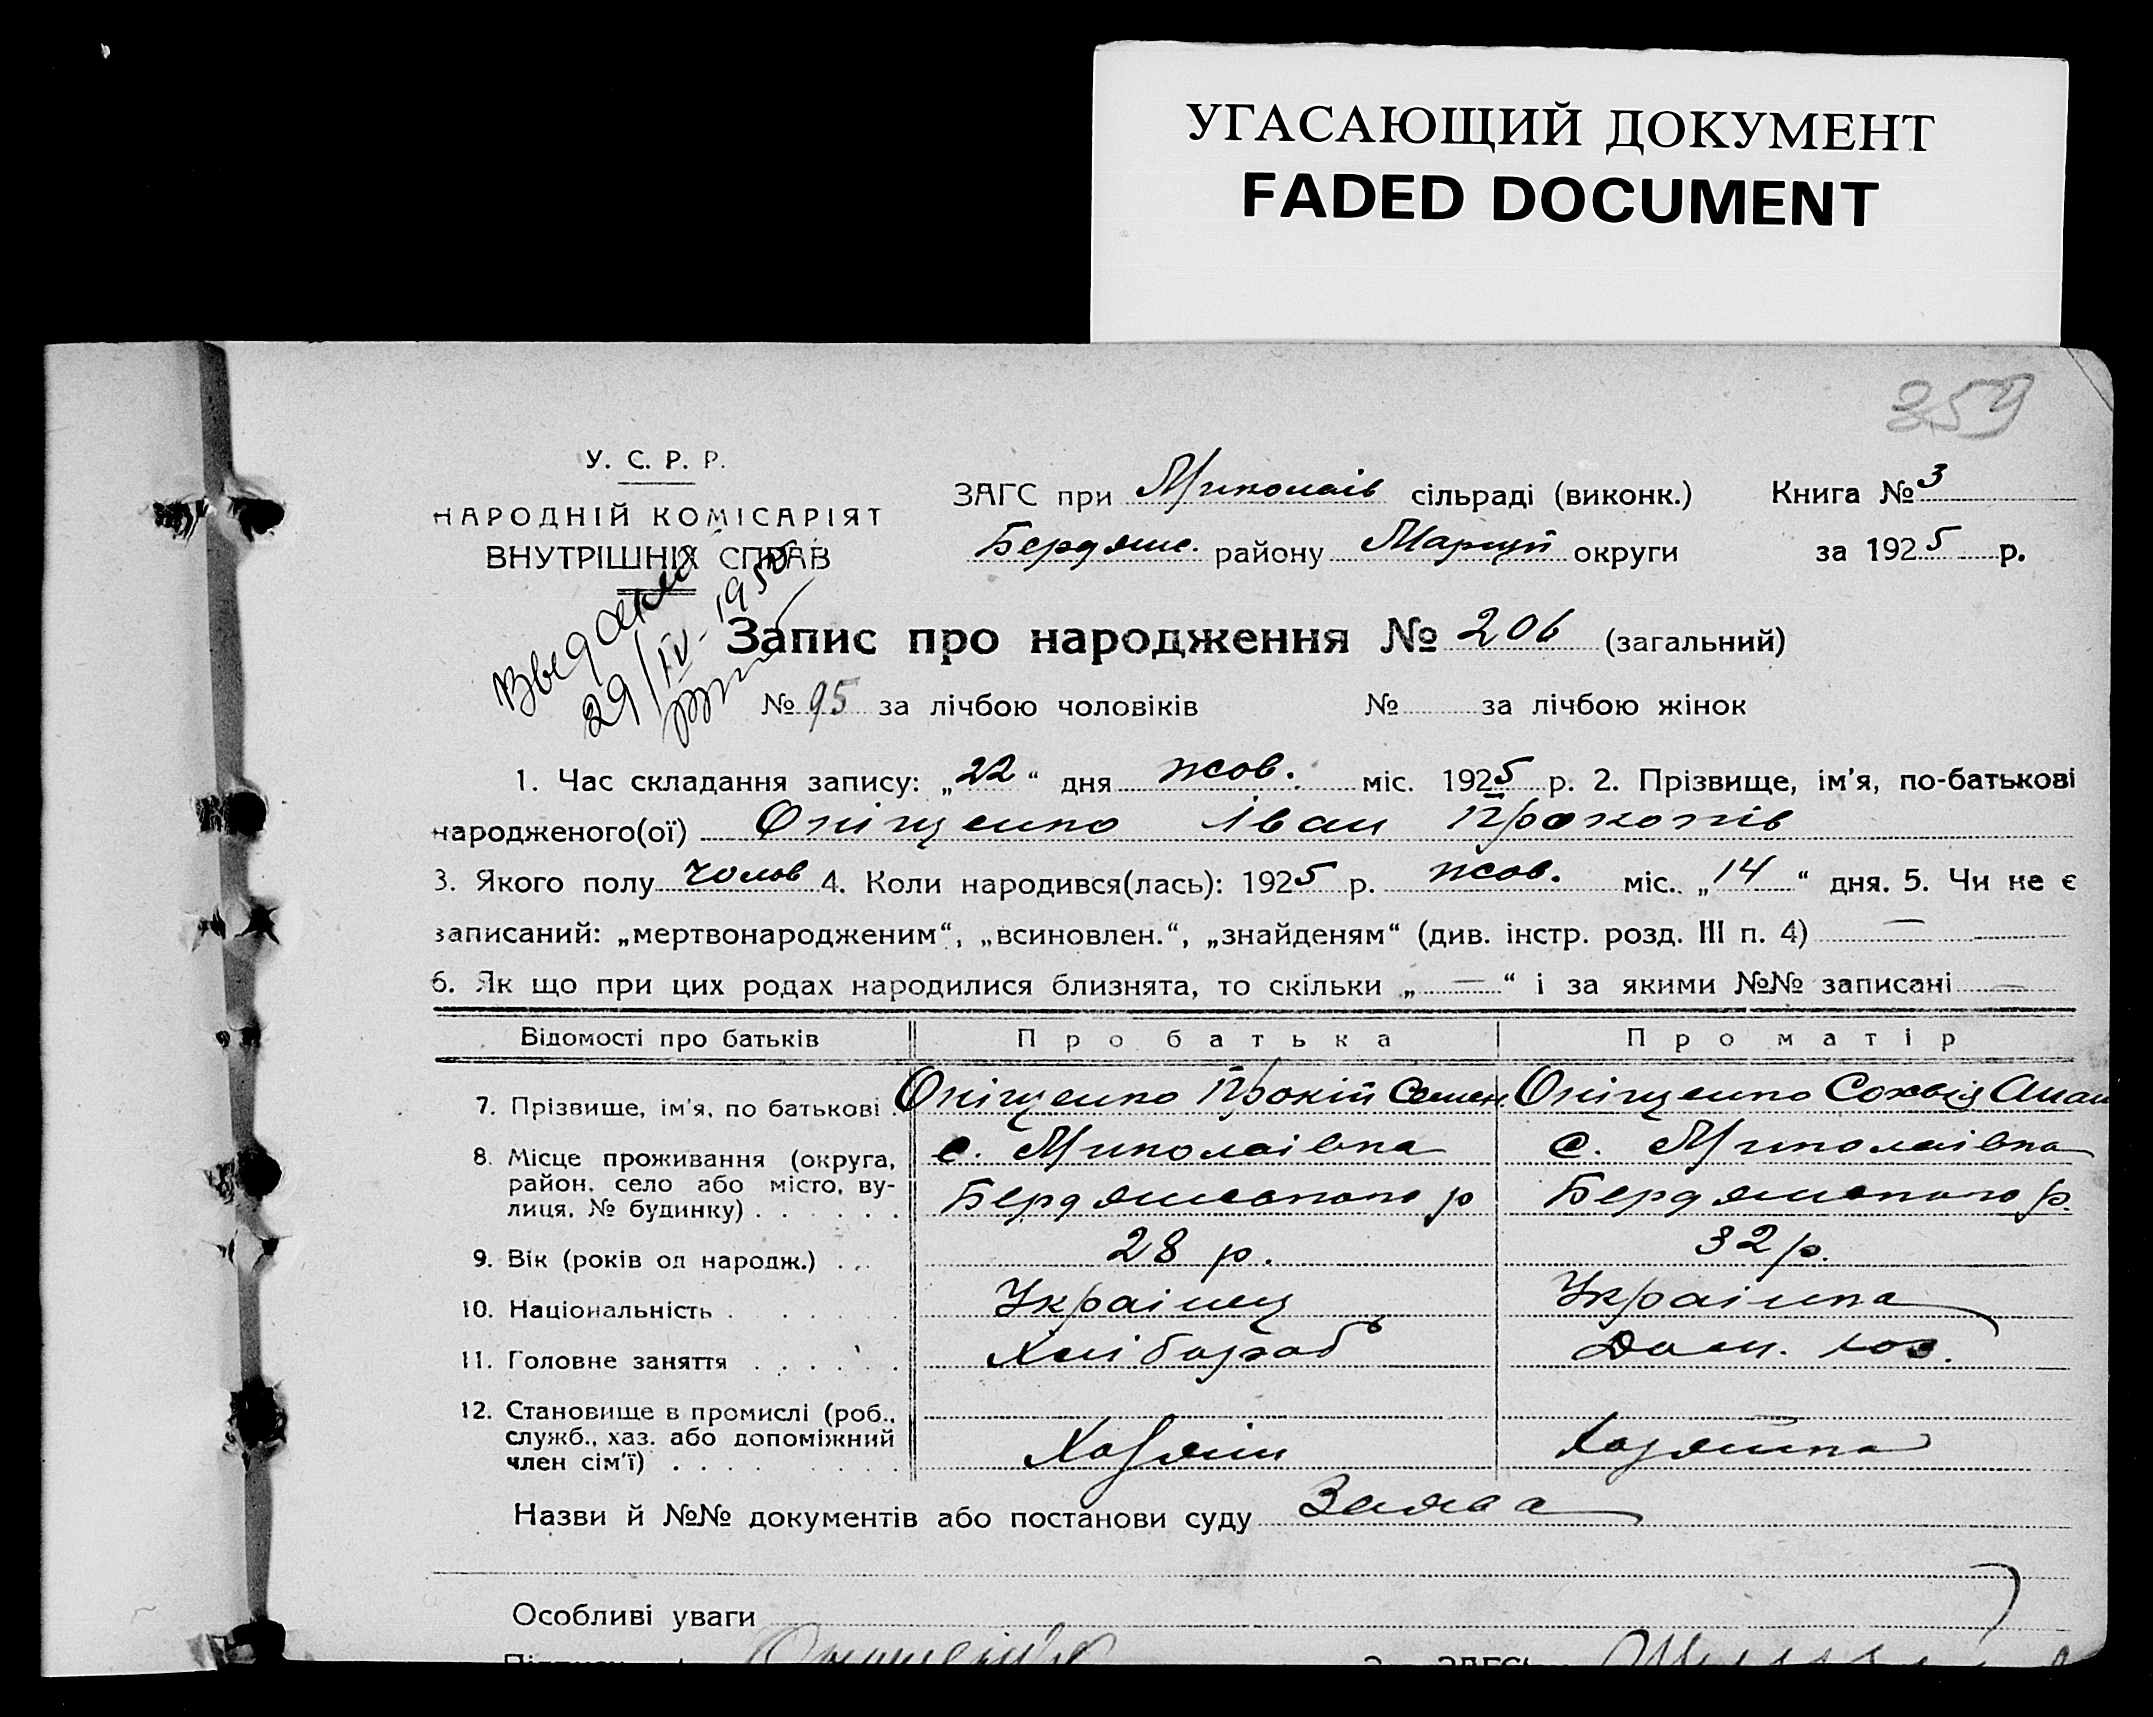 УГАСАЮЩИЙ ДОКУМЕНТ
FADED DOCUMENT
359
У. С. Р. Р.
НАРОДНІЙ КОМІСАРІЯТ
ВНУТРІШНІХ СПРАВ
ЗАГС при Миколаів сільраді (виконк.) Книга № 3
Бердянс. району Маріуп округи за 1925 р.
29/IV-195
Запис про народження № 206 (загальний)
№ 95 за лічбою чоловіків № за лічбою жінок
1. Час складання запису: „22“ дня жов. міс. 1925 р. 2. Прізвище, ім'я, по-батькові
народженого(ої) Оніщенко Іван Прокопів
3. Якого полу чолов 4. Коли народився(лась): 1925 р. жов. міс. „14“ дня. 5. Чи не є
записаний: „мертвонародженим“, „всиновлен.“, „знайденям“ (див. інстр. розд. III п. 4) —
6. Як що при цих родах народилися близнята, то скільки „—“ і за якими №№ записані —
Відомості про батьків Про батька Про матір
7. Прізвище, ім'я, по батькові . Оніщенко Прокій Семен. Оніщенко Софія Анан
8. Місце проживання (округа, с. Миколаівка с. Миколаівка
район, село або місто, ву-
лиця, № будинку) . . . . . . Бердянського р Бердянського р.
9. Вік (років од народж.) . . . 28 р. 32 р.
10. Національність . . . . . Украінец Украінка
11. Головне заняття . . . . . Хлібороб Дом. хоз.
12. Становище в промислі (роб.,
служб., хаз. або допоміжний
член сім'ї) . . . . . . . . . Хазяін Хазяйка
Назви й №№ документів або постанови суду Заява
Особливі уваги